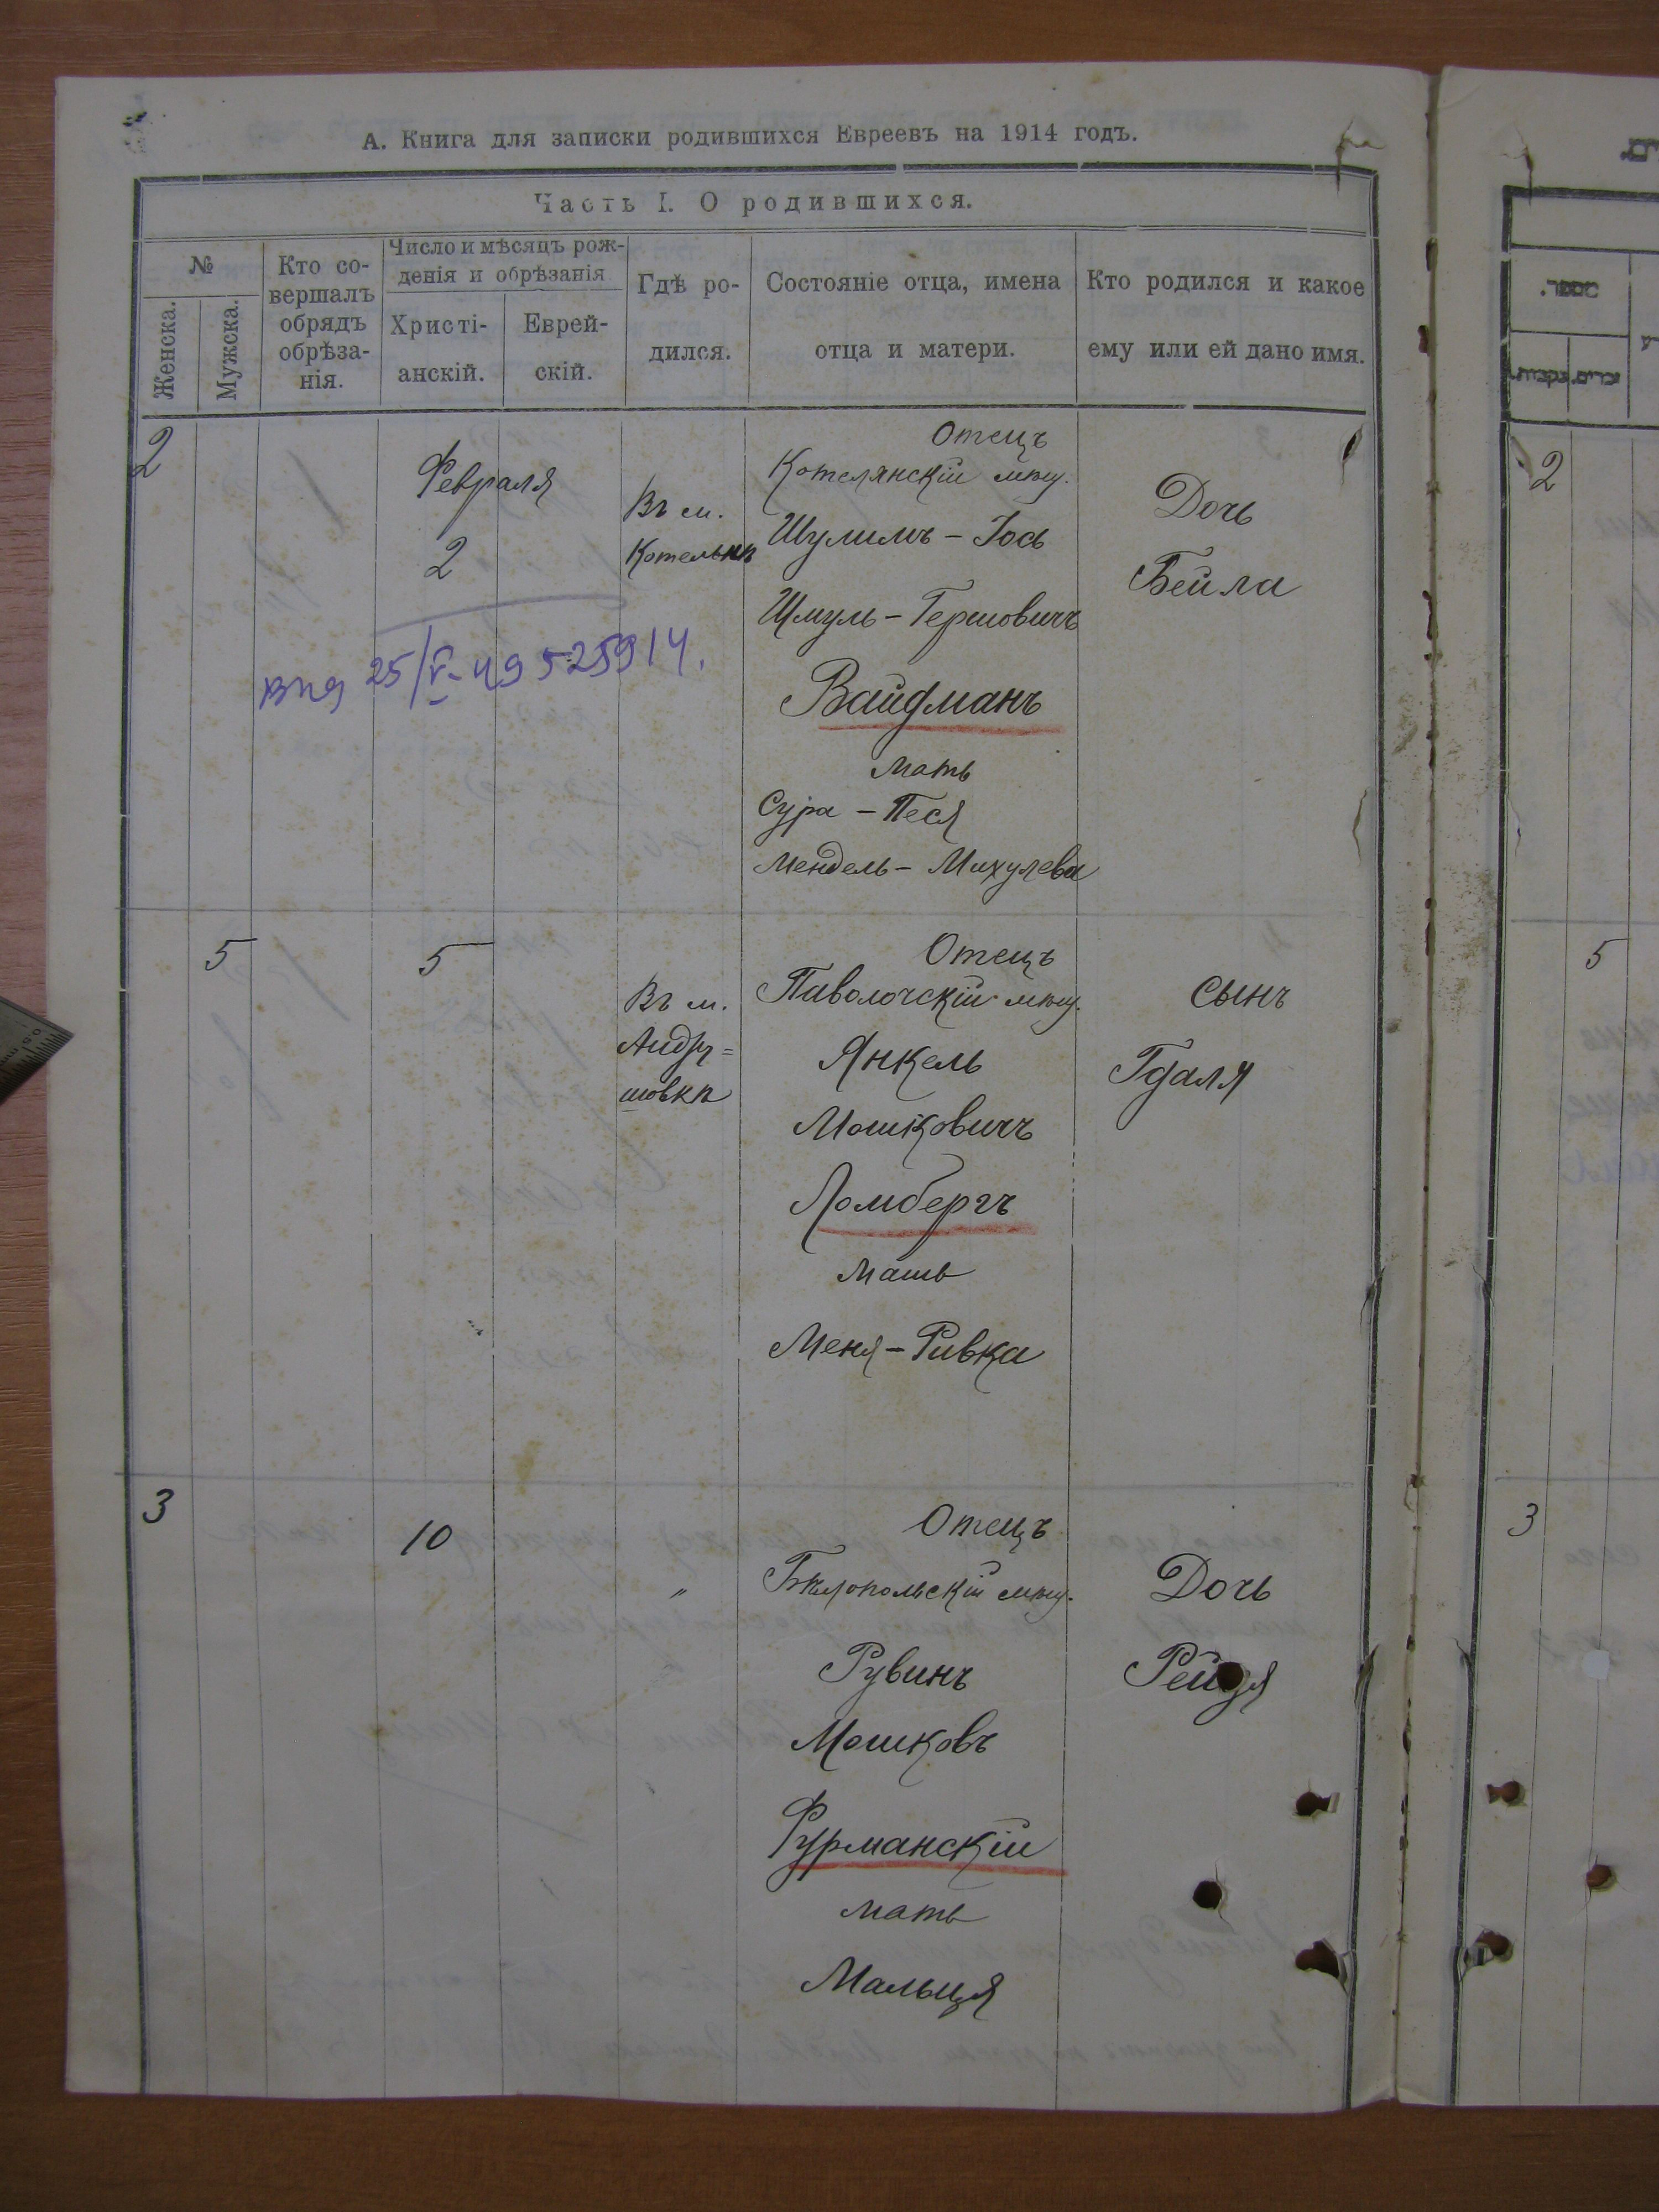 А. Книга для записки родившихся Евреевъ на 1914 годъ.
Часть I. О родившихся.
№
Женска.
Мужска.
Кто со-
вершалъ
обрядъ
обрѣза-
нія.
Число и мѣсяцъ рож-
денія и обрѣзанія
Христі-
анскій.
Еврей-
скій.
Гдѣ ро-
дился.
Состояніе отца, имена
отца и матери.
Кто родился и какое
ему или ей дано имя.
2
Февраля
2
25/V-49 525914.
Въ м.
Котельнѣ
Отецъ
Котелянскій мѣщ.
Шулимъ - Іось
Шмуль - Гершовичъ
Вайдманъ
мать
Сура - Песя
Мендель - Михулева
Дочь
Бейла
5
5
Въ м.
Андру=
шовкѣ
Отецъ
Паволочскій мѣщ.
Янкель
Мошковичъ
Ломбергъ
мать
Меня - Ривка
сынъ
Гдаля
3
10
"
Отецъ
Бѣлопольскій мѣщ.
Рувинъ
Мошковъ
Фурманскій
мать
Мальця
Дочь
2
5
3